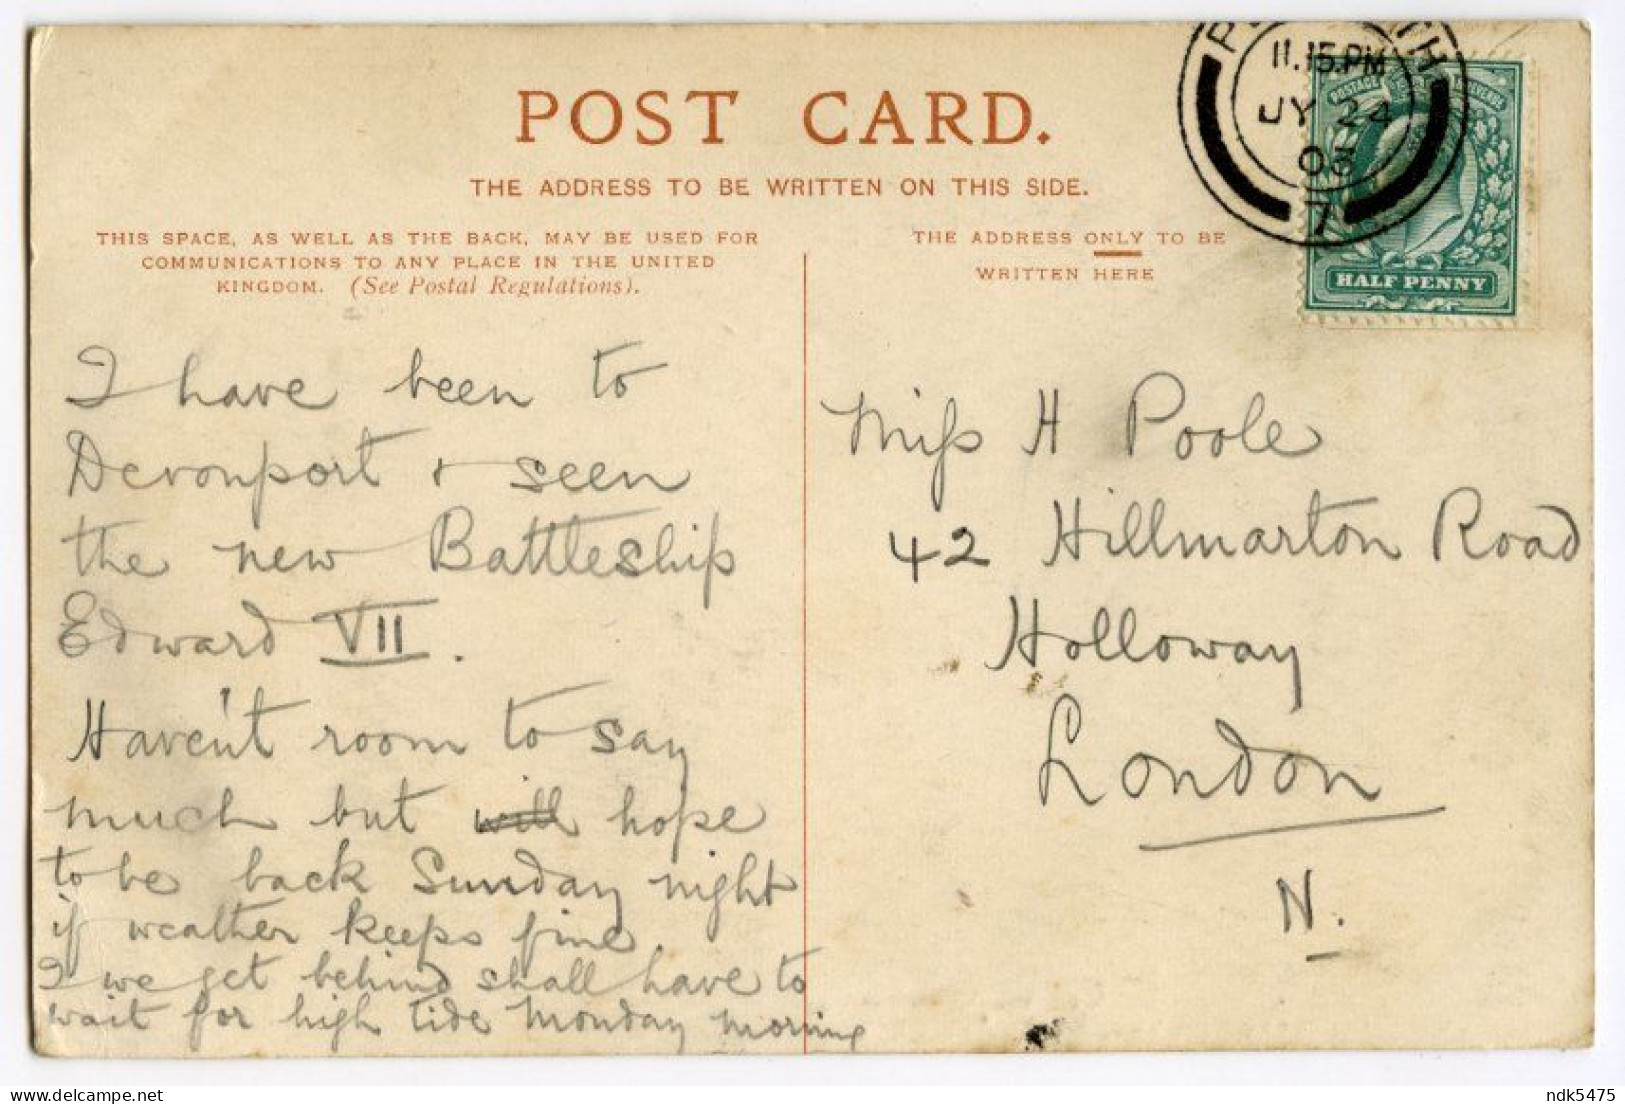 POST CARD.
THE ADDRESS TO BE WRITTEN ON THIS SIDE.
THIS SPACE, AS WELL AS THE BACK, MAY BE USED FOR
COMMUNICATIONS TO ANY PLACE IN THE UNITED
KINGDOM. (See Postal Regulations).
THE ADDRESS ONLY TO BE
WRITTEN HERE
11.15.PM
JY 24
7
POSTAGE REVENUE
HALF PENNY
I have been to
Devonport & seen
the new Battleship
Edward VII.
Haven't room to say
much but will hope
to be back Sunday night
if weather keeps fine.
I we get behind shall have to
wait for high tide Monday morning
Miss H Poole
42 Hillmarton Road
Holloway
London
N.
delcampe.net
ndk5475